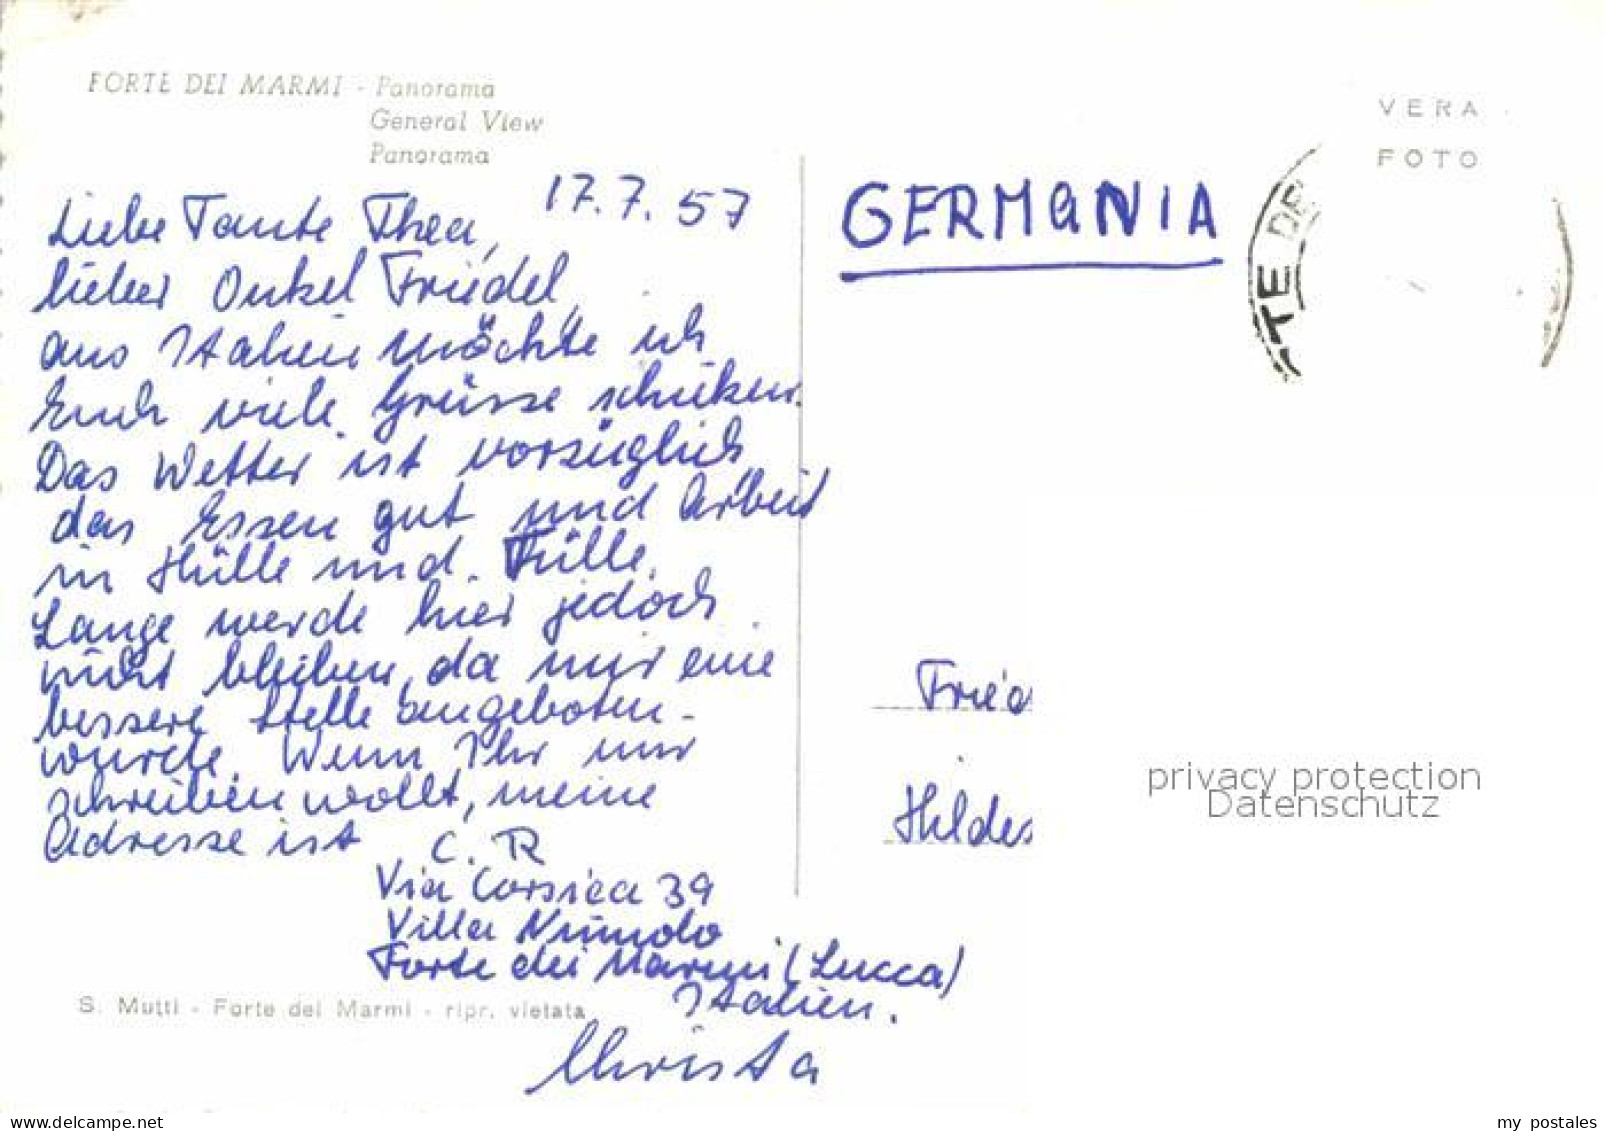 FORTE DEI MARMI - Panorama
General View
Panorama
17.7.57
Liebe Tante Thea,
lieber Onkel Friedel,
aus Italien möchte ich
Euch viele Grüsse schicken.
Das Wetter ist vorzüglich,
das Essen gut und Arbeit
in Hülle und Fülle.
Lange werde hier jedoch
nicht bleiben, da mir eine
bessere Stelle angeboten
wurde. Wenn Ihr mir
schreiben wollt, meine
Adresse ist
C. R
Via Corsica 39
Villa
Forte dei Marmi (Lucca)
Italien.
Christa
S. Mutti - Forte dei Marmi - ripr. vietata
GERMANIA
VERA
FOTO
TE DE
Fried
Hildes
privacy protection
Datenschutz
www.delcampe.net
my_postales